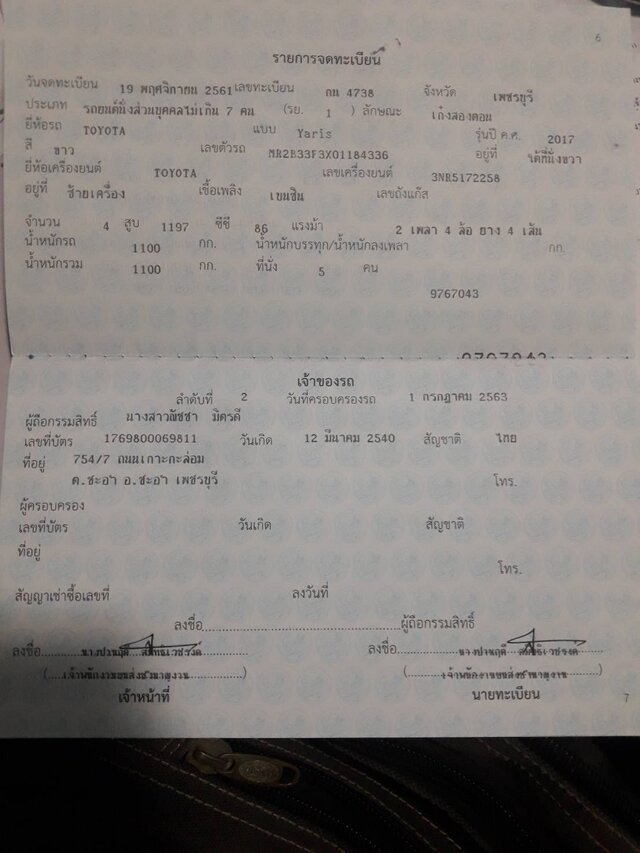 6
รายการจดทะเบียน
วันจดทะเบียน 19 พฤศจิกายน 2561 เลขทะเบียน กน 4738 จังหวัด เพชรบุรี
ประเภท รถยนต์นั่งส่วนบุคคลไม่เกิน 7 คน (รย. 1 ) ลักษณะ เก๋งสองตอน
ยี่ห้อรถ TOYOTA แบบ Yaris รุ่นปี ค.ศ. 2017
สี ขาว เลขตัวรถ MR2B33F3X01184336 อยู่ที่ ใต้ที่นั่งขวา
ยี่ห้อเครื่องยนต์ TOYOTA เลขเครื่องยนต์ 3NR5172258
อยู่ที่ ซ้ายเครื่อง เชื้อเพลิง เบนซิน เลขถังแก๊ส
จำนวน 4 สูบ 1197 ซีซี 86 แรงม้า 2 เพลา 4 ล้อ ยาง 4 เส้น
น้ำหนักรถ 1100 กก. น้ำหนักบรรทุก/น้ำหนักลงเพลา กก.
น้ำหนักรวม 1100 กก. ที่นั่ง 5 คน
9767043
เจ้าของรถ
ลำดับที่ 2 วันที่ครอบครองรถ 1 กรกฎาคม 2563
ผู้ถือกรรมสิทธิ์ นางสาวณัชชา มิตรดี
เลขที่บัตร 1769800069811 วันเกิด 12 มีนาคม 2540 สัญชาติ ไทย
ที่อยู่ 754/7 ถนนเกาะกะล่อม
ต.ชะอำ อ.ชะอำ เพชรบุรี โทร.
ผู้ครอบครอง
เลขที่บัตร วันเกิด สัญชาติ
ที่อยู่
โทร.
สัญญาเช่าซื้อเลขที่ ลงวันที่
ลงชื่อ ผู้ถือกรรมสิทธิ์
ลงชื่อ ลงชื่อ
(เจ้าพนักงานขนส่งชำนาญงาน) (เจ้าพนักงานขนส่งชำนาญงาน)
เจ้าหน้าที่ นายทะเบียน
7